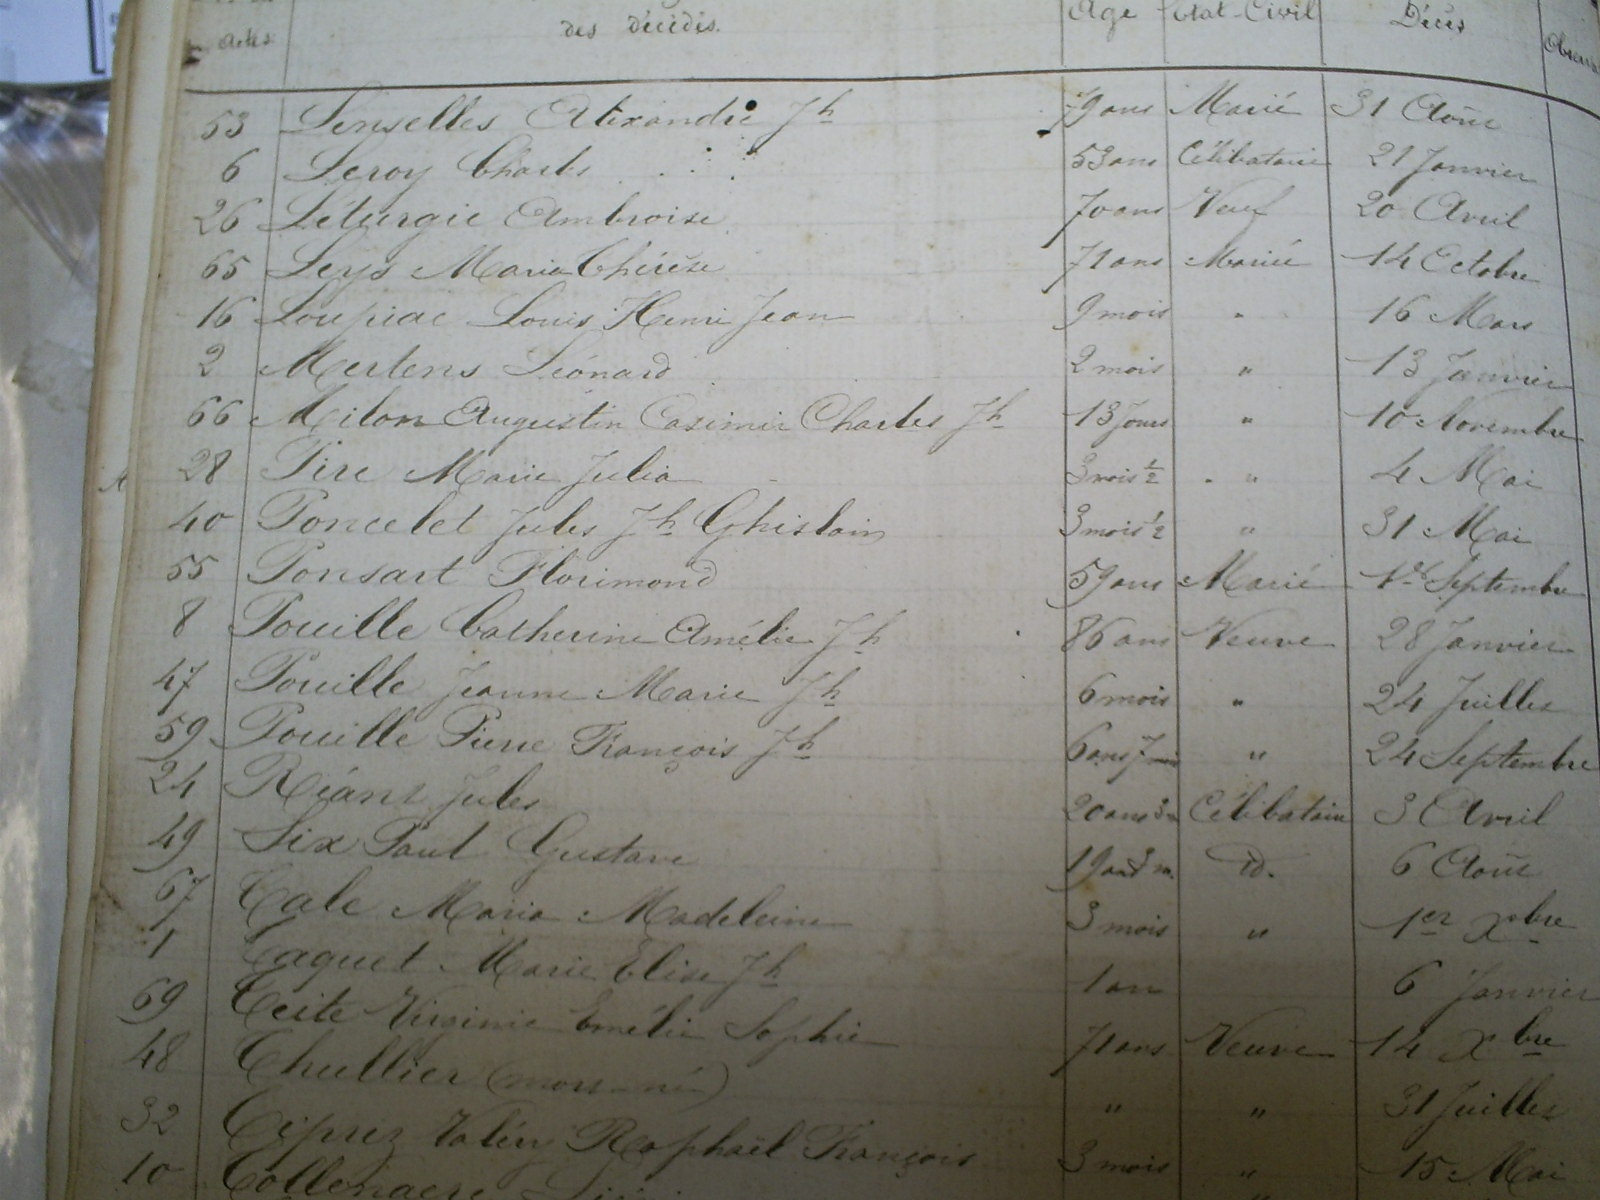 Actes des décédés. Age Etat-Civil Décès
53 Lenselles Alexandre Jh 79 ans Marié 31 Août
6 Leroy Charles 53 ans Célibataire 21 Janvier
26 Léturgie Ambroise 70 ans Veuf 20 Avril
65 Leys Maria Thérèse 71 ans Mariée 14 Octobre
16 Loupiac Louis Henri Jean 9 mois " 16 Mars
2 Mertens Léonard 2 mois " 13 Janvier
66 Milon Augustin Casimir Charles Jh 13 Jours " 10 Novembre
28 Pire Marie Julia 3 mois 1/2 " 4 Mai
40 Poncelet Jules Jh Ghislain 3 mois 1/2 " 31 Mai
55 Ponsart Florimond 59 ans Marié 1er Septembre
8 Pouille Catherine Amélie Jh 86 ans Veuve 28 Janvier
47 Pouille Jeanne Marie Jh 6 mois " 24 Juillet
59 Pouille Pierre François Jh 6 ans 7 mois " 24 Septembre
24 Réant Jules 20 ans 3 m Célibataire 3 Avril
49 Six Paul Gustave 19 ans 3 m. id. 6 Août
67 Tale Maria Madeleine 3 mois " 1er Xbre
1 Taquet Marie Elise Jh 1 an 6 Janvier
69 Teite Virginie Emélie Sophie 71 ans Veuve 14 Xbre
48 Thullier (mort-né) " " 31 Juillet
32 Tiprez Valéry Raphaël François 3 mois " 15 Mai
10 Tollenaere